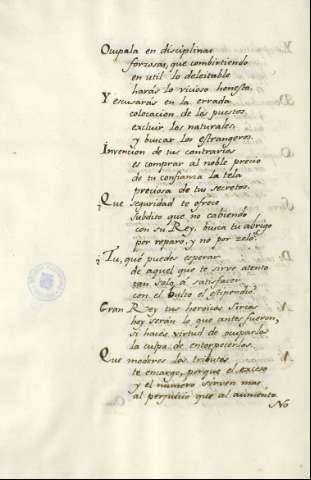 Ocupala en disciplinas
forzosas, que combirtiendo
en util lo deleitable
harás lo vicioso honesto.
Y escusarás en la errada
colocacion de los puestos
excluir los naturales,
y buscar los estrangeros.
Invencion de tus contrarios
es comprar al noble precio
de tu confianza la tela
preciosa de tus secretos.
¿Que seguridad te ofrece
subdito que no cabiendo
con su Rey, busca tu abrigo
por reparo, y no por zelo?
¿Tu, qué puedes esperar
de aquel que te sirve atento
tan solo á satisfacer
con el bulto el estipendio?
Gran Rey tus heroicas fuerzas
hoy serán lo que antes fueron,
si haces virtud de ocuparlos
la culpa de entorpecerlos.
Que moderes los tributos
te encargo, porque el exceso
y el número sirven mas
al perjuicio que al aumento.
No